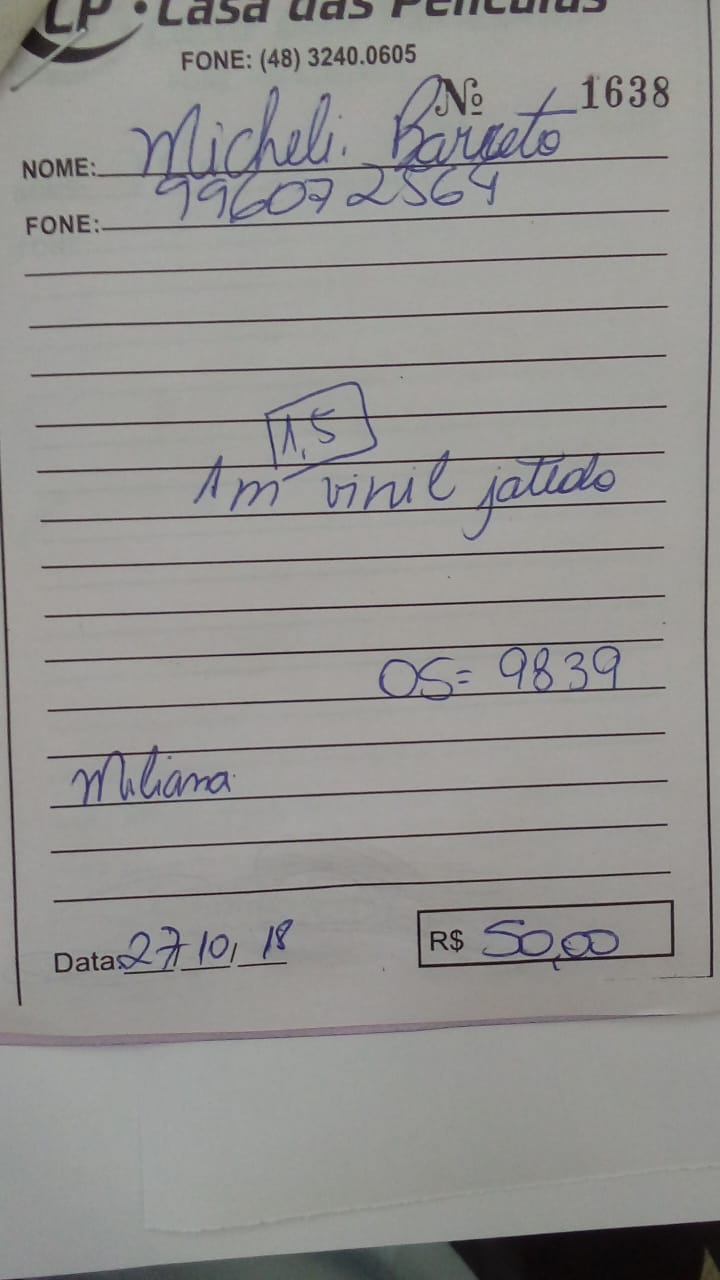 LP • Casa das Películas
FONE: (48) 3240.0605
Nº 1638
NOME: Micheli. Barreto
FONE: 996072564
1,5
1m vinil jatedo
OS= 9839
Miliana
Data: 27/10/18
R$ 50,00